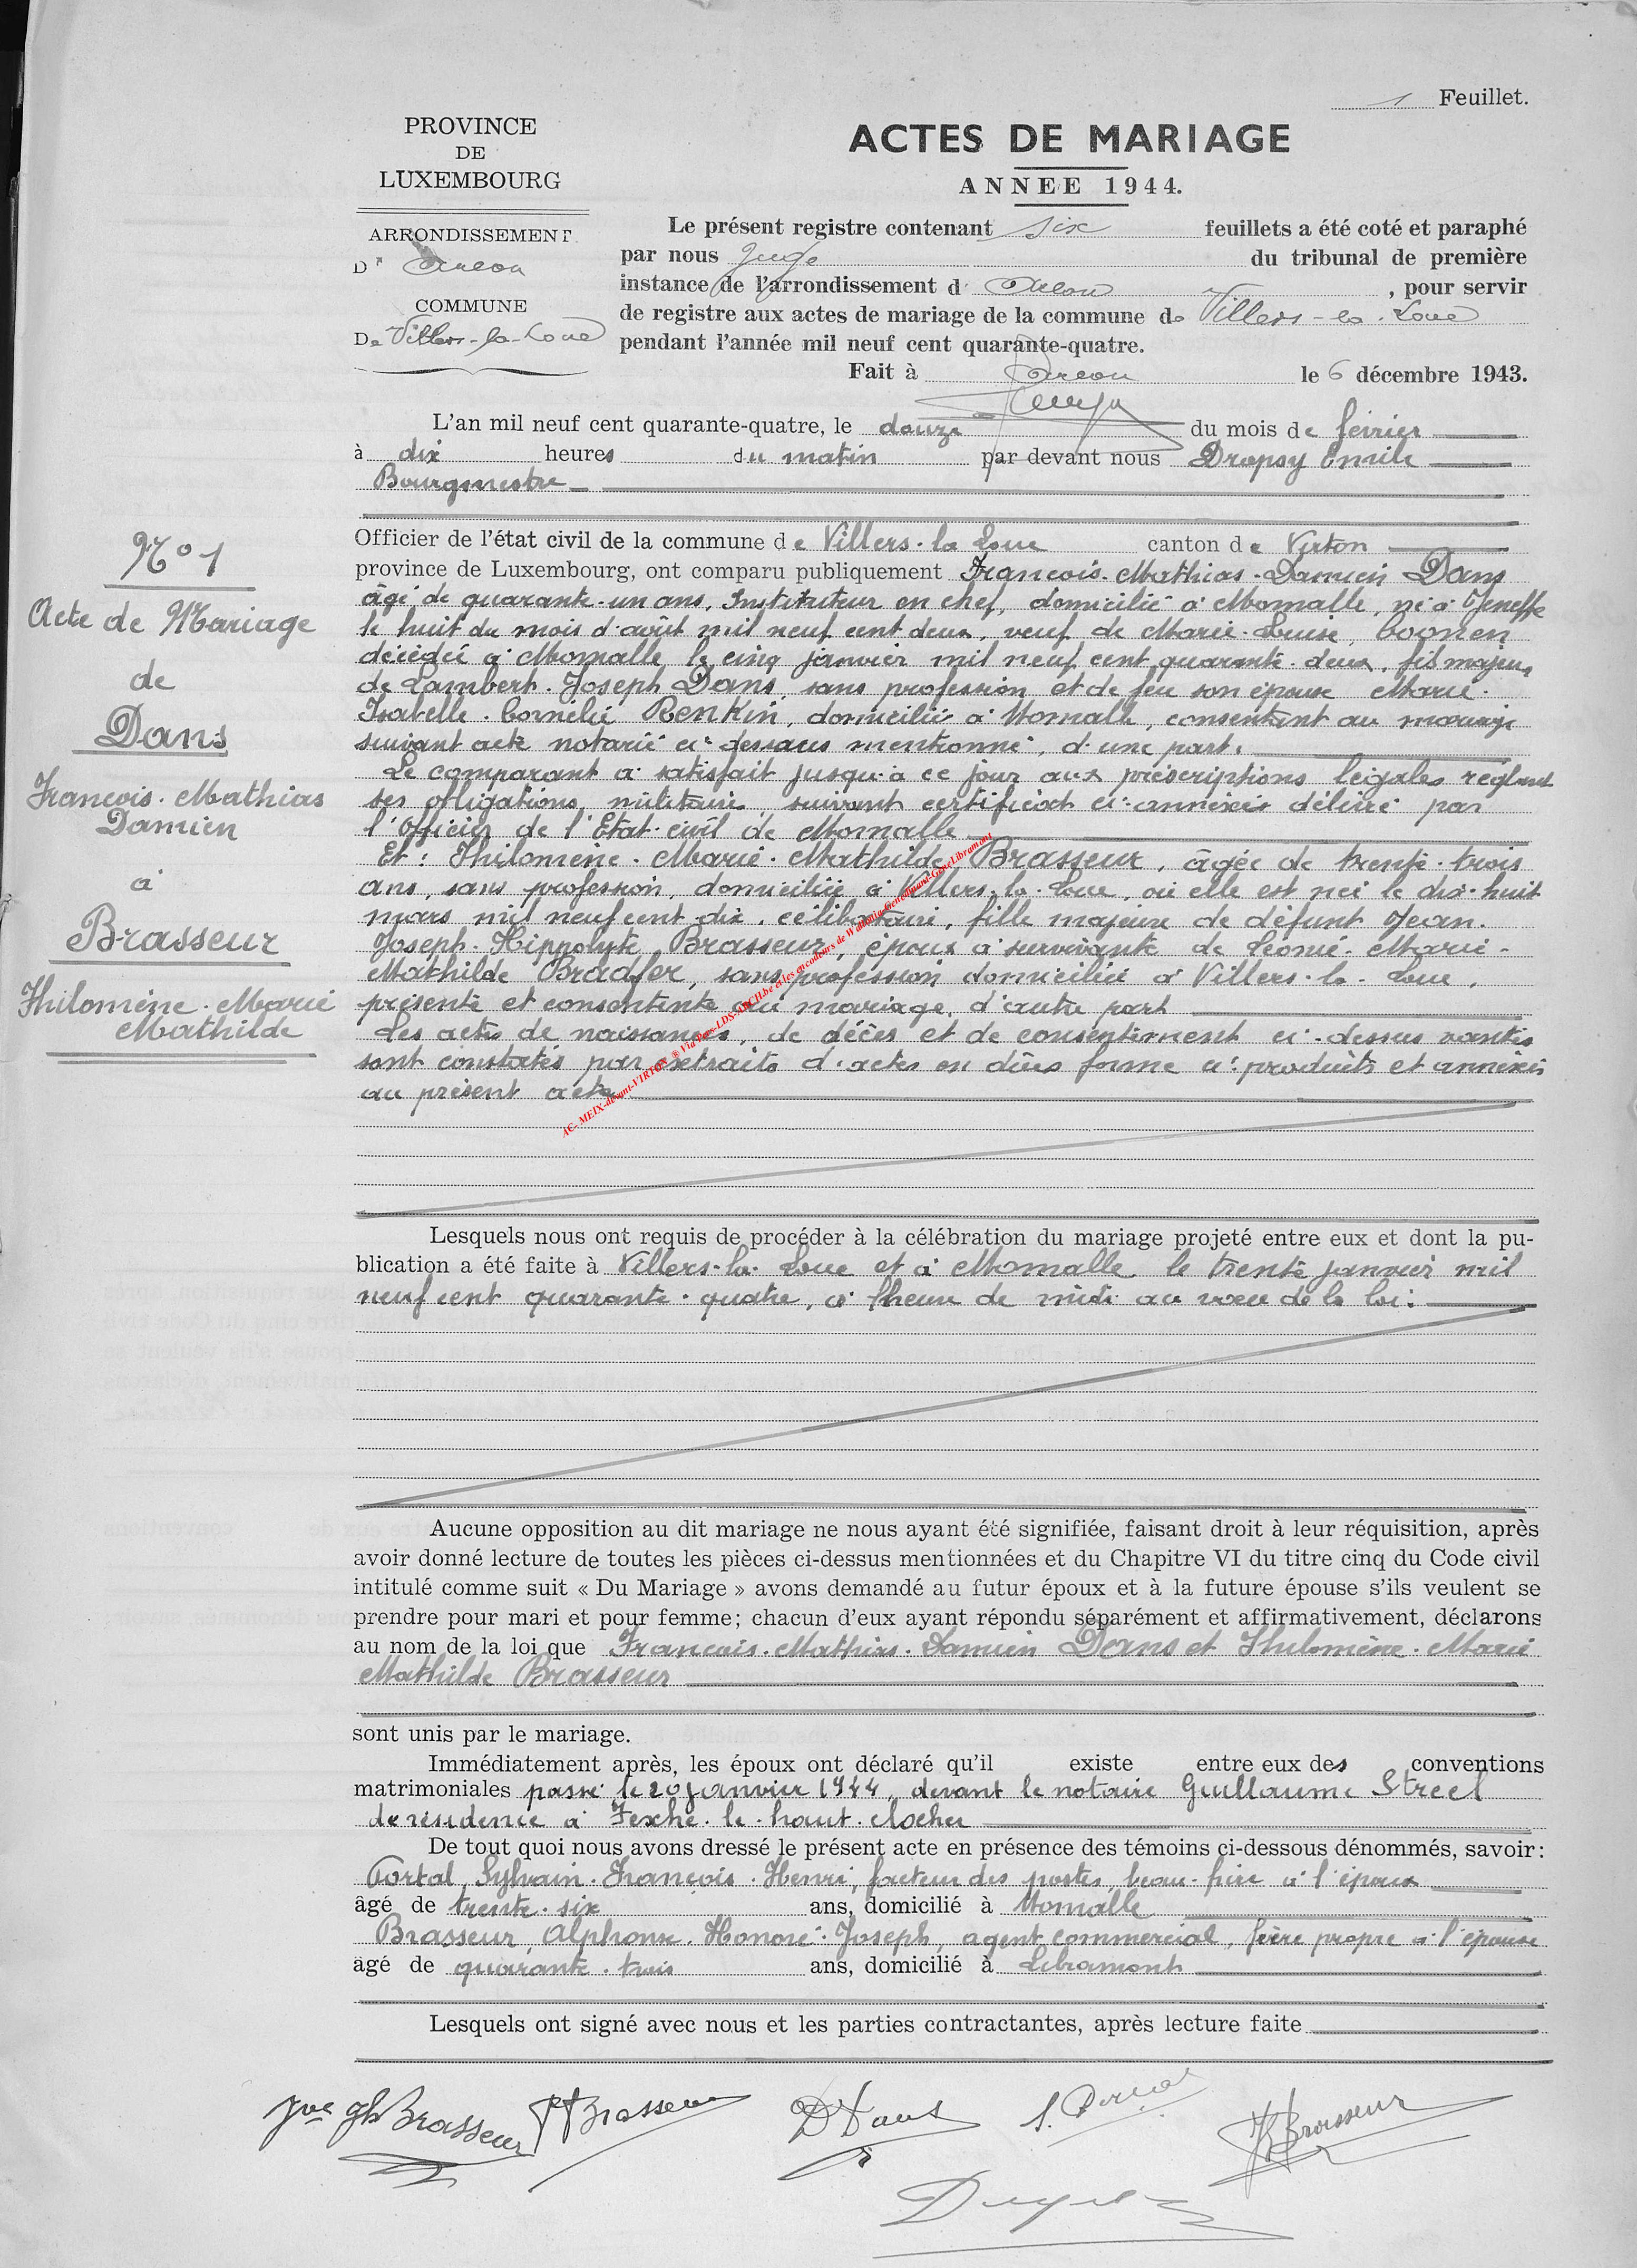 1 Feuillet.
PROVINCE
DE
LUXEMBOURG
ARRONDISSEMENT
D' Arlon
COMMUNE
De Villers-la-Loue
ACTES DE MARIAGE
ANNEE 1944.
Le présent registre contenant six feuillets a été coté et paraphé
par nous Juge du tribunal de première
instance de l'arrondissement d' Arlon , pour servir
de registre aux actes de mariage de la commune de Villers-la-Loue
pendant l'année mil neuf cent quarante-quatre.
Fait à Arlon le 6 décembre 1943.
L'an mil neuf cent quarante-quatre, le douze du mois de février
à dix heures du matin par devant nous Dropsy Emile
Bourgmestre
Officier de l'état civil de la commune de Villers-la Loue canton de Virton
province de Luxembourg, ont comparu publiquement François-Mathias-Damien Dans
âgé de quarante-un ans, Instituteur en chef, domicilié à Momalle, né à Jeneffe
le huit du mois d'août mil neuf cent deux, veuf de Marie-Louise Coonen
décédée à Momalle le cinq janvier mil neuf cent quarante-deux, fils majeur
de Lambert-Joseph Dans, sans profession et de feu son épouse Marie-
Isabelle-Cornélie Renkin, domicilié à Momalle, consentant au mariage
suivant acte notarié ci-dessous mentionné, d'une part.
Le comparant a satisfait jusqu'à ce jour aux préscriptions légales réglant
ses obligations militaires suivant certificat ci-annexé délivré par
l'Officier de l'Etat-civil de Momalle
Et: Philomène-Marie-Mathilde Brasseur, âgée de trente-trois
ans, sans profession, domiciliée à Villers-la-Loue, où elle est née le dix-huit
mars mil neuf cent dix, célibataire, fille majeure de défunt Jean-
Joseph-Hippolyte Brasseur, époux à survivante de Léonie-Marie-
Mathilde Bradfer, sans profession domiciliée à Villers-la-Loue,
présente et consentante au mariage, d'autre part
Les actes de naissances, de décès et de consentement ci-dessus vantés
sont constatés par extraits d'actes en dûes forme ci-produits et annexés
au présent acte
N° 1
Acte de Mariage
de
Dans
François-Mathias
Damien
à
Brasseur
Philomène-Marie
Mathilde
AC- MEIX-devant-VIRTON ® Via Pars-LDS-ARCH.be et les encodeurs de Wallonia-Gentilhomt-Gene Libramont
Lesquels nous ont requis de procéder à la célébration du mariage projeté entre eux et dont la pu-
blication a été faite à Villers-la-Loue et à Momalle le trente janvier mil
neuf cent quarante-quatre, à l'heure de midi au vœu de la loi:
Aucune opposition au dit mariage ne nous ayant été signifiée, faisant droit à leur réquisition, après
avoir donné lecture de toutes les pièces ci-dessus mentionnées et du Chapitre VI du titre cinq du Code civil
intitulé comme suit « Du Mariage » avons demandé au futur époux et à la future épouse s'ils veulent se
prendre pour mari et pour femme; chacun d'eux ayant répondu séparément et affirmativement, déclarons
au nom de la loi que François-Mathias-Damien Dans et Philomène-Marie
Mathilde Brasseur
sont unis par le mariage.
Immédiatement après, les époux ont déclaré qu'il existe entre eux des conventions
matrimoniales passé le 20 janvier 1944, devant le notaire Guillaume Streel
de résidence à Fexhe-le-haut-clocher
De tout quoi nous avons dressé le présent acte en présence des témoins ci-dessous dénommés, savoir:
Portal, Sylvain-François-Henri, facteur des postes, beau-frère à l'époux
âgé de trente-six ans, domicilié à Momalle
Brasseur, Alphonse-Honoré-Joseph, agent commercial, frère propre à l'épouse
agé de quarante-trois ans, domicilié à Libramont
Lesquels ont signé avec nous et les parties contractantes, après lecture faite
Jve Jh Brasseur Brasseur D Dans S. Brasseur
Dropsy